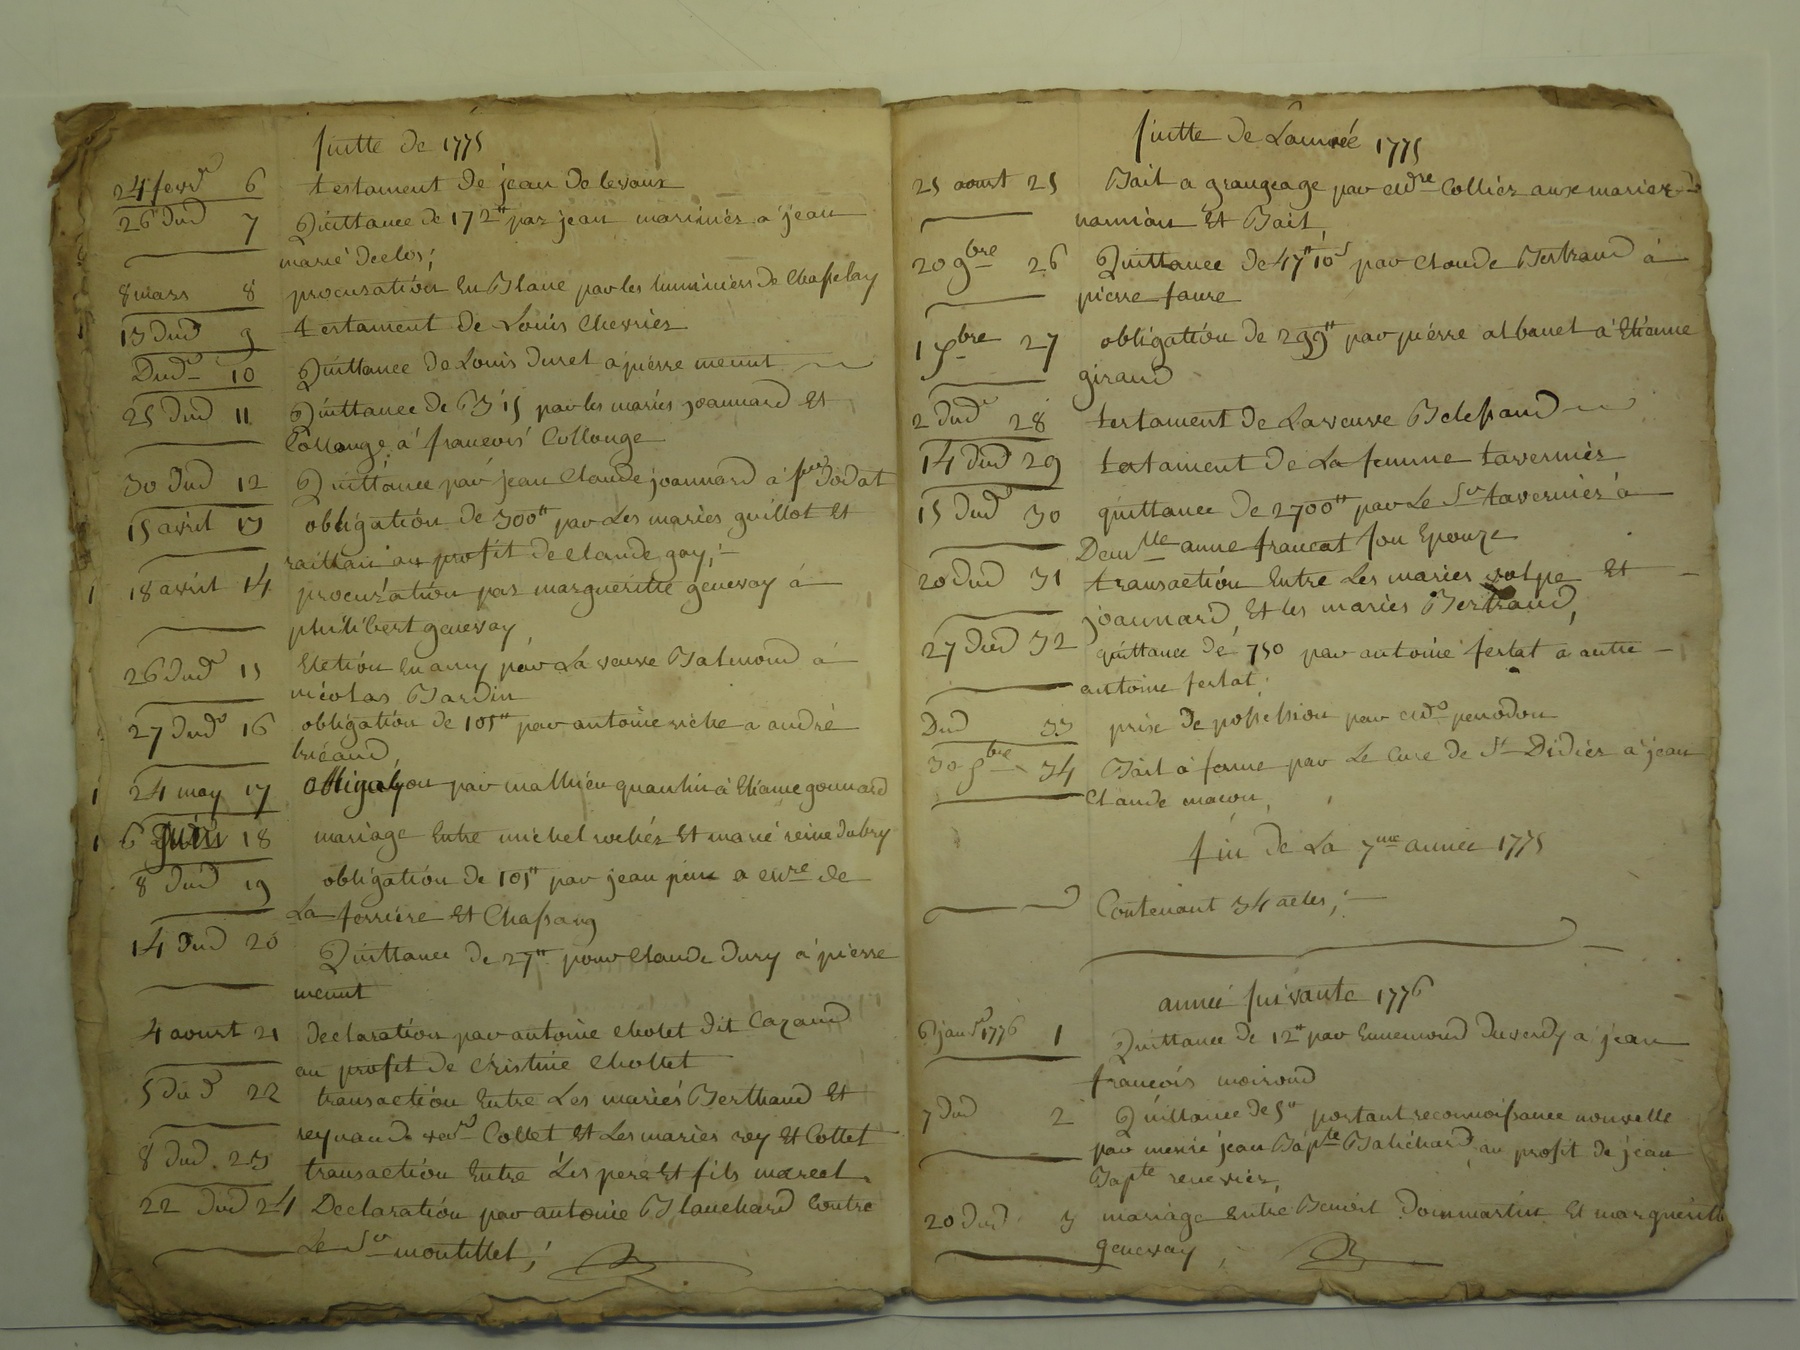 suitte de 1775
24 fevr 6 testament de jean de levaux
26 dud 7 Quittance de 172tt par jean mariniér a jean
marié declos;
8 mars 8 procuration En Blanc par les luminiers de Chasselay
13 dud 9 testament de Louis Chevriér
Dud 10 Quittance de Louis duret a piérre menut
25 dud 11 Quittance de 15 par les mariés joannard Et
Collonge a françois Collonge
30 dud 12 Quittance par jean Claude joannard a dodat
15 avril 13 obligation de 300tt par Les mariés guillot Et
au profit de claude gay;
1 18 avril 14 procuration par margueritte genevay à
philibert genevay
26 dud 15 Eletion En amy par La veuve Balmond à
nicolas Bardin
27 dud 16 obligation de 105tt par antoine riche a andré
bricaud
1 24 may 17 obligation par mathieu quantin à Etienne gonnard
1 6 juin 18 mariage Entre michel rochér Et marié reine dubry
8 dud 19 obligation de 105tt par jean a de
La ferriere Et Chassang
14 dud 20 Quittance de 27tt pour Claude dury a pierre
menut
4 aoust 21 declaration par antoine cholet dit Cazaud
au profit de Cristine Chollet
5 dud 22 transaction Entre Les mariés Berthaud Et
reynaud Collet Et Les maries rey Et Collet
8 dud 23 transaction Entre Les pere Et fils marcel
22 dud 24 Declaration par antoine Blanchard Contre
Le Sr montellet;
suitte de Lannéé 1775
25 aoust 25 Bail a grangeage par Colliér aux mariés
namian Et Bail,
20 9bre 26 Quittance de 47tt 10s par Claude Bertraud à
pierre faure
1 Xbre 27 obligation de 299tt par piérre albanel à Etienne
giraud
2 dud 28 testament de La veuve
14 dud 29 testament de La femme taverniér
15 dud 30 quittance de 2700tt par Le Sr taverniér à
Demlle anne françat son Epouze
20 dud 31 transaction Entre Les maries volpe Et
joannard, Et les mariés Bertraud,
27 dud 32 quittance de 750 par antoine ferlat a autre
antoine ferlat;
Dud 33 prise de possession par penodon
30 9bre 34 Bail a ferme par Le Cure de St Didiér a jean
Claude macon,
fin de La 7me année 1775
Contenant 34 actes;
année suivante 1776
6 janvr 1776 1 Quittance de 12tt par Ennemond duverdy a jean
françois moiroud
7 dud 2 Quittance de 5tt portant reconnoissance nouvelle
par jean Bapte au profit de jean
Bapte reneviér,
20 dud 3 mariage Entre Benoist Dommartin Et margueritte
genevay;